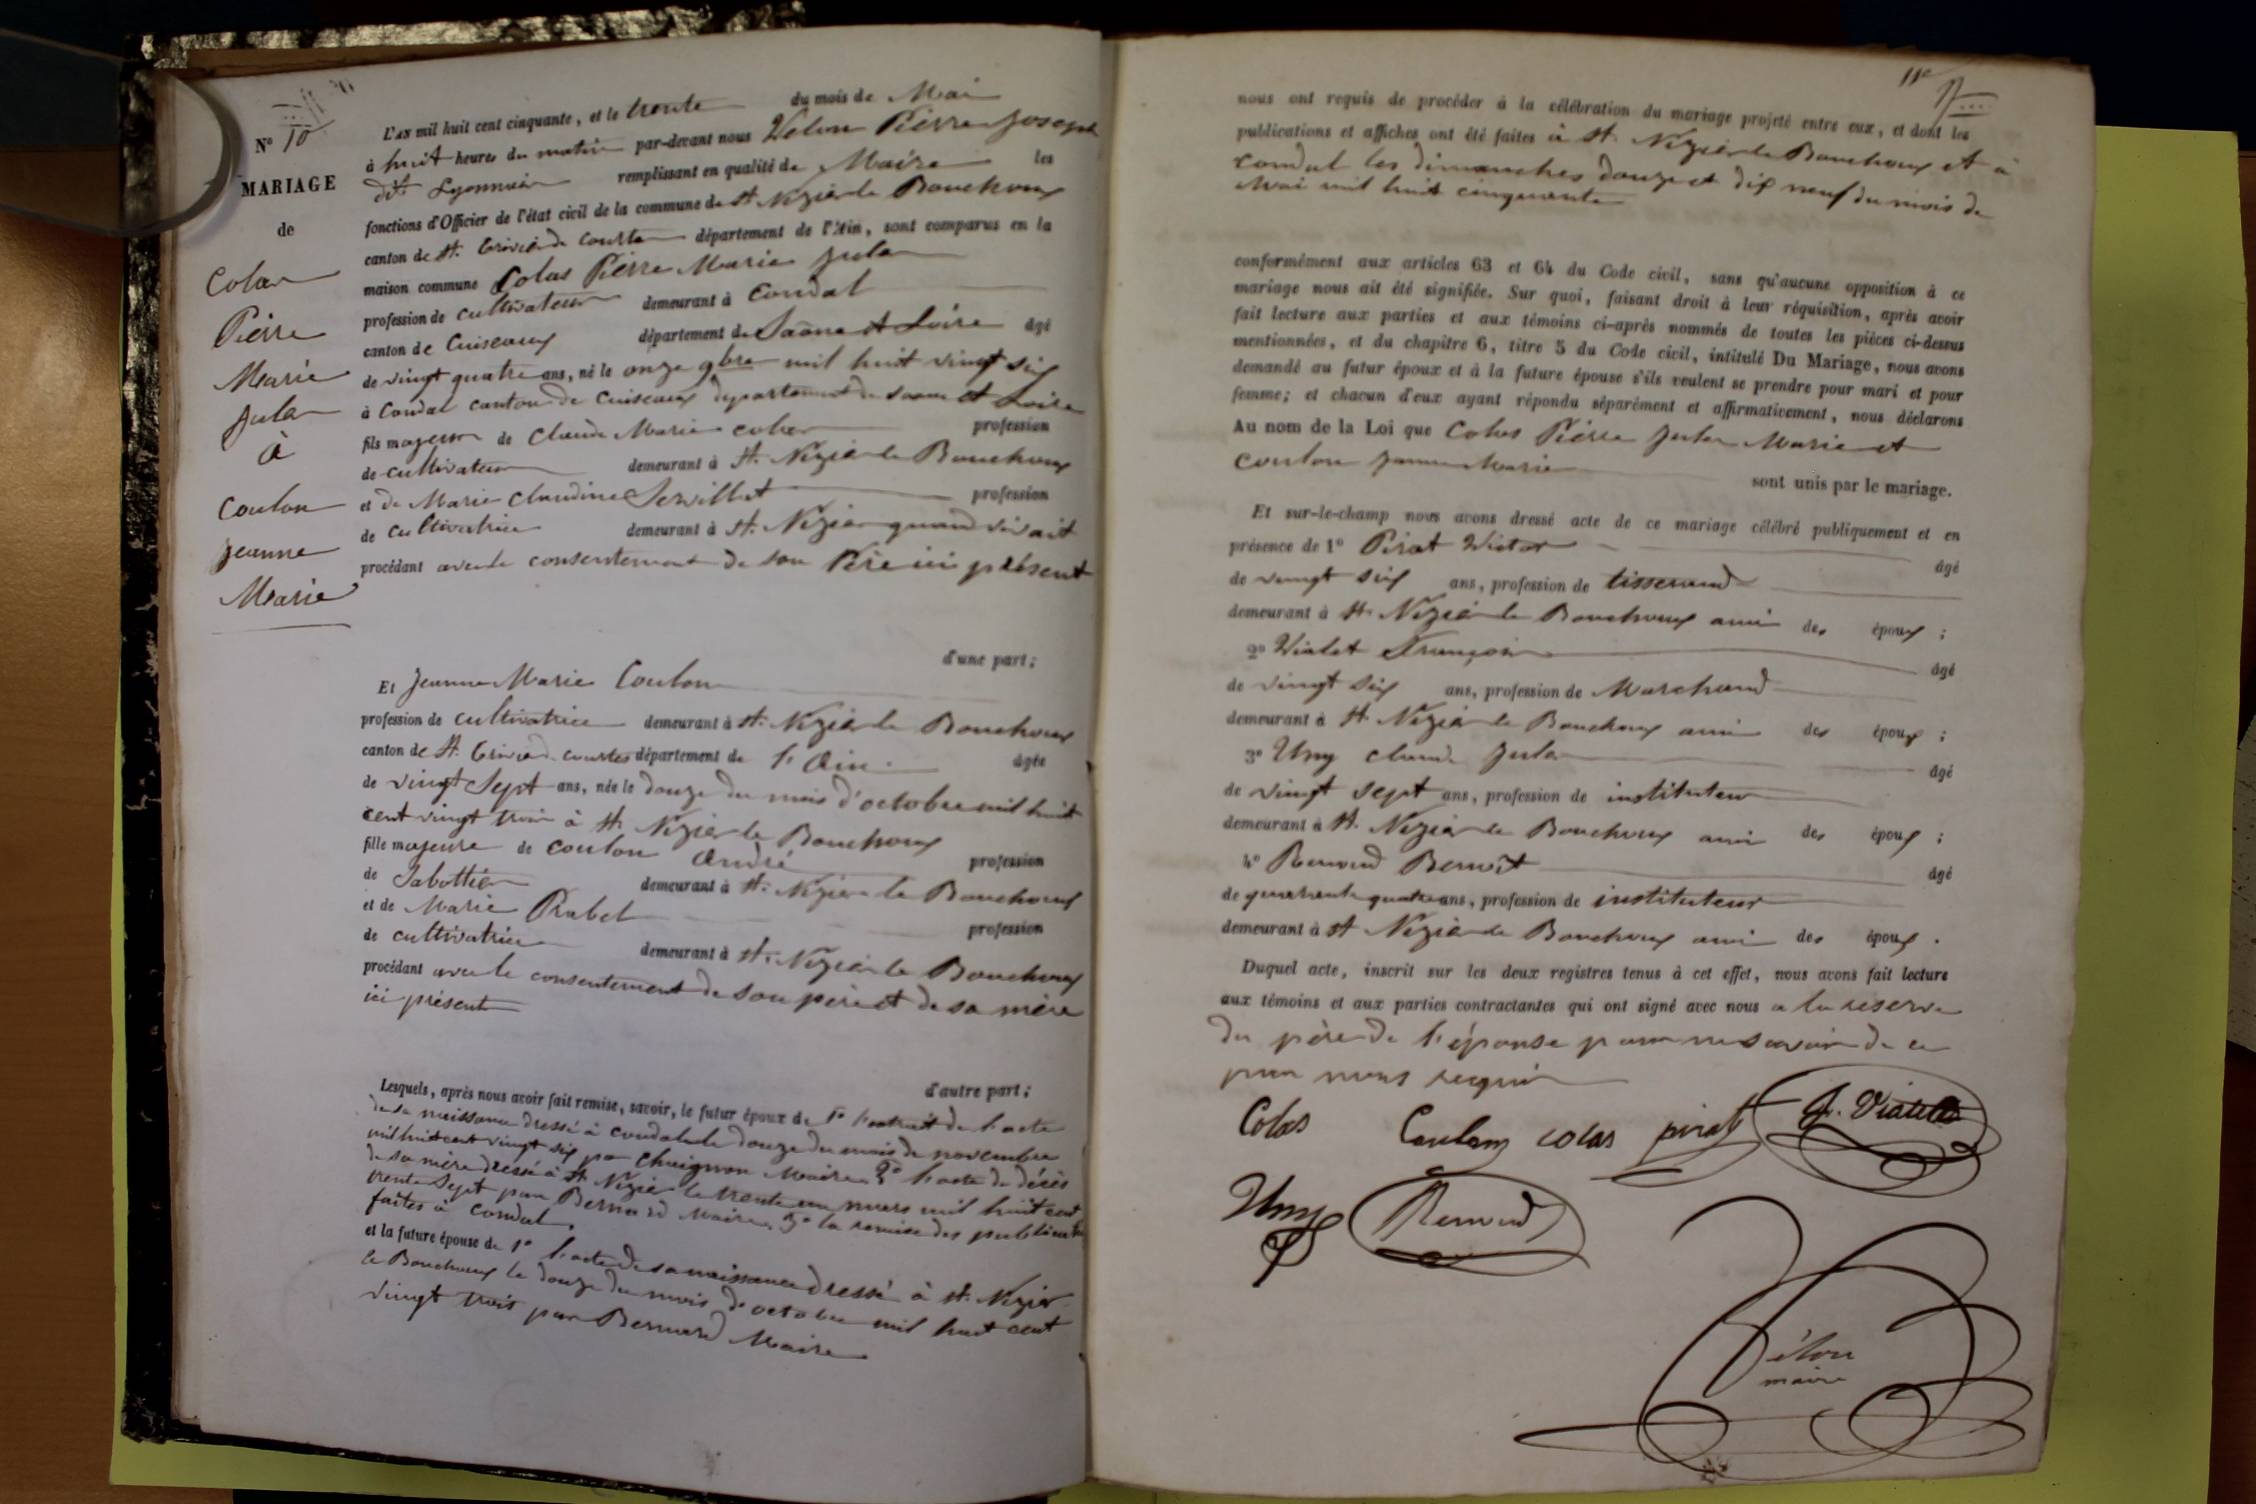 N° 10
MARIAGE
de
Colas
Pierre
Marie
Jules
à
Coulon
Jeanne
Marie
L'AN mil huit cent cinquante, et le trente du mois de Mai
à huit heures du matin par-devant nous Velon Pierre Joseph
dit Lyonnais remplissant en qualité de Maire les
fonctions d'Officier de l'état civil de la commune de St Nizier le Bouchoux
canton de St. Trivier de Courtes département de l'Ain, sont comparus en la
maison commune Colas Pierre Marie Jules
profession de cultivateur demeurant à Condal
canton de Cuiseaux département de Saone et Loire âgé
de vingt quatre ans, né le onze 9bre mil huit vingt six
à Condal canton de Cuiseaux département de Saone et Loire
fils majeur de Claude Marie Colas profession
de cultivateur demeurant à St. Nizier le Bouchoux
et de Marie Claudine Servillat profession
de cultivatrice demeurant à St. Nizier quand vivait
procédant avec le consentement de son Père ici présent
d'une part;
Et Jeanne Marie Coulon
profession de cultivatrice demeurant à St. Nizier le Bouchoux
canton de St. Trivier d. Courtes département de l'Ain. âgée
de vingt Sept ans, née le douze du mois d'octobre mil huit
cent vingt trois à St. Nizier le Bouchoux
fille majeure de Coulon André profession
de Sabottier demeurant à St. Nizier le Bouchoux
et de Marie Rabel profession
de cultivatrice demeurant à St. Nizier le Bouchoux
procédant avec le consentement de son père et de sa mère
ici présent
d'autre part;
Lesquels, après nous avoir fait remise, savoir, le futur époux de 1° l'extrait de l'acte
de sa naissance dressé à Condal le douze du mois de novembre
mil huit cent vingt six par Chaignon Maire 2° l'acte de décès
de sa mère dressé à St Nizier le trente un mars mil huit cent
trente Sept par Bernard Maire, 3° la remise des publications
faites à Condal.
et la future épouse de 1° l'acte de sa naissance dressé à St. Nizier
le Bouchoux le douze du mois d'octobre mil huit cent
vingt trois par Bernard Maire
11e
nous ont requis de procéder à la célébration du mariage projeté entre eux, et dont les
publications et affiches ont été faites à St. Nizier le Bouchoux et à
Condal les dimanches douze et dix neuf du mois de
Mai mil huit cinquante
conformément aux articles 63 et 64 du Code civil, sans qu'aucune opposition à ce
mariage nous ait été signifiée. Sur quoi, faisant droit à leur réquisition, après avoir
fait lecture aux parties et aux témoins ci-après nommés de toutes les pièces ci-dessus
mentionnées, et du chapitre 6, titre 5 du Code civil, intitulé Du Mariage, nous avons
demandé au futur époux et à la future épouse s'ils veulent se prendre pour mari et pour
femme; et chacun d'eux ayant répondu séparément et affirmativement, nous déclarons
Au nom de la Loi que Colas Pierre Jules Marie et
Coulon Jeanne Marie
sont unis par le mariage.
Et sur-le-champ nous avons dressé acte de ce mariage célébré publiquement et en
présence de 1° Pirat Victor âgé
de vingt six ans, profession de tisserand
demeurant à St. Nizier le Bouchoux ami des époux;
2° Vialet François âgé
de vingt six ans, profession de Marchand
demeurant à St. Nizier le Bouchoux ami des époux;
3° Uny Claude Jules âgé
de vingt sept ans, profession de instituteur
demeurant à St. Nizier le Bouchoux ami des époux;
4° Renoud Benoît âgé
de quarante quatre ans, profession de instituteur
demeurant à St Nizier le Bouchoux ami des époux.
Duquel acte, inscrit sur les deux registres tenus à cet effet, nous avons fait lecture
aux témoins et aux parties contractantes qui ont signé avec nous a la reserve
du père de l'épouse pour ne savoir de ce
par nous requis
Colas Coulon colas pirat f. Vialet
Uny Renoud
Vélon
maire